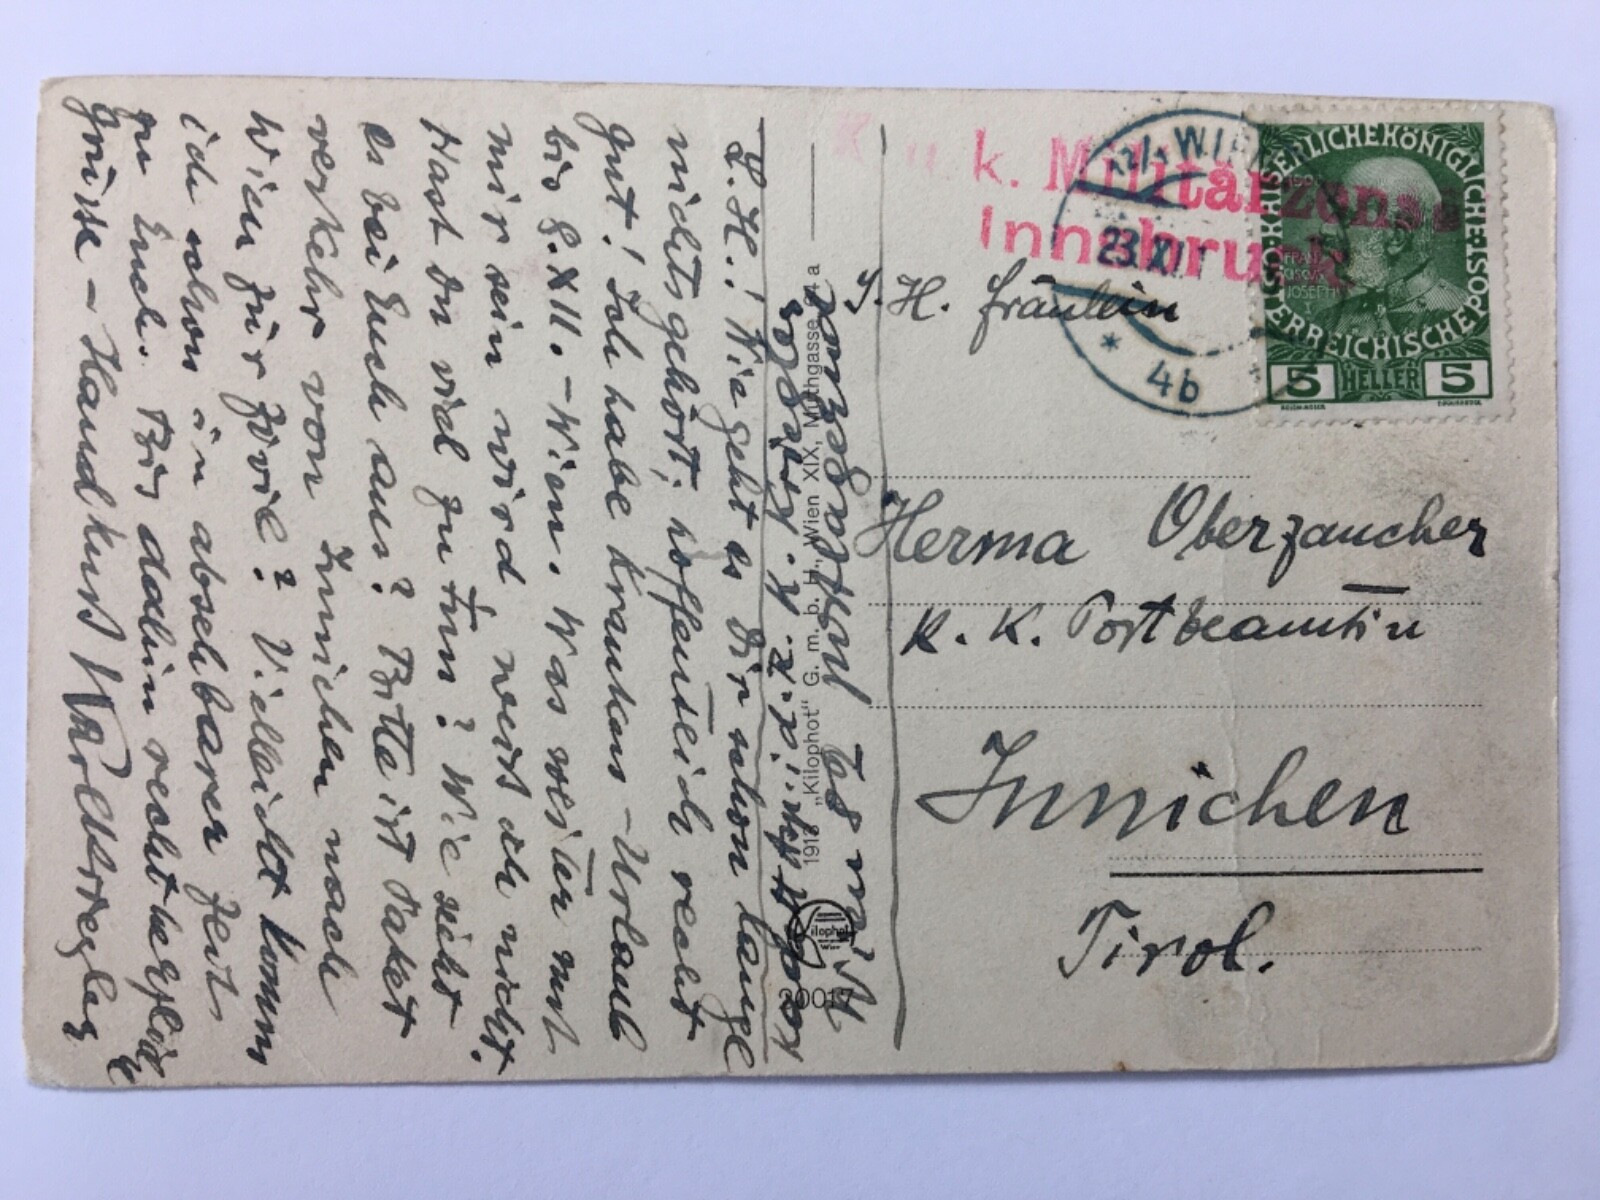 K. u. k. Militärzensur
Innsbruck
12/1 WIEN
23.XI.
* 4b
KAISERLICHE KÖNIGLICHE
ÖSTERREICHISCHE POST
FRANCISCUS JOSEPH
5 HELLER 5
I. H. Fräulein
Herma Oberzaucher
K. K. Postbeamtin
Innichen
Tirol.
L. H.! Wie geht es Dir schon lange
nichts gehört, hoffentlich recht
gut! Ich habe Kranken-Urlaub
bis 8.XII. - Wien. Was weiter mit
mir sein wird weiß ich nicht.
Hast Du viel zu tun? Wie sieht
es bei Euch aus? Bitte ist Paket
verkehr von Innichen nach
Wien für Zivil? Vielleicht komm
ich schon in absehbarer Zeit
zu Euch. Bis dahin recht herzliche
Grüsse - Handkuss
1917 „Kilophot“ G. m. b. H., Wien XIX, Muthgasse
Kilophot
Wien
20017